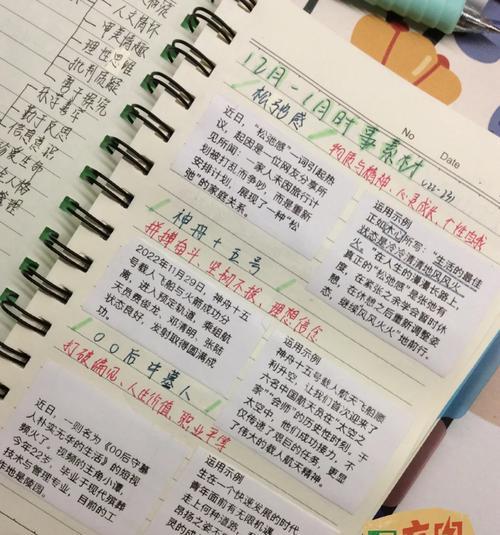 人文情怀
审美情趣
理性思维
批判质疑
勇于探究
乐学善学
勤于反思
信息意识
珍爱生命
健全人格
管理
12月-1月时事素材
No
Date
松弛感
物质与精神、心灵成长、个性自我
近日，“松弛感”一词引起热
议，起因是一位网友分享所
见所闻：一家人未因旅行计
划被打乱而争吵，而是重新
安排计划，展现了一种“松
弛”的家庭关系。
运用示例
正如木心所写：“生活的最佳
状态是冷冷清清地风风火
火。”在人生的漫漫长路上
真正的“松弛感”是张弛有
度，在紧张之余学会暂时休
息，在休憩之后重新调整姿
态，继续风风火火地前行。
神舟十五号
拼搏奋斗、坚韧不拔、理想信念
2022年11月29日，神舟十五
号载人飞船与火箭成功分
离，进入预定轨道，乘组航
天员费俊龙、邓清明、张陆
状态良好，发射取得圆满成
功。
运用示例
神舟十五号载人航天飞船顺
利升空，让我们首次迎来了
六名中国航天员在“太空之
家”“会师”的历史性时刻，于
太空中，他们成功接力，不
仅传递了艰巨的任务，更显
了伟大的载人航天精神。
00后守墓人
打破偏见、人生价值、职业平等
近日，一则名为《00后守墓
人朴实无华的生活》的短视
频火了，视频的主角小谭，
今年22岁，毕业于现代殡葬
技术与管理专业，目前的工
作地是陵园。
运用示例
生在一个快速发展的时代
青年面前有无限机遇
走上何种道路，有
昂扬之姿不
灵的成